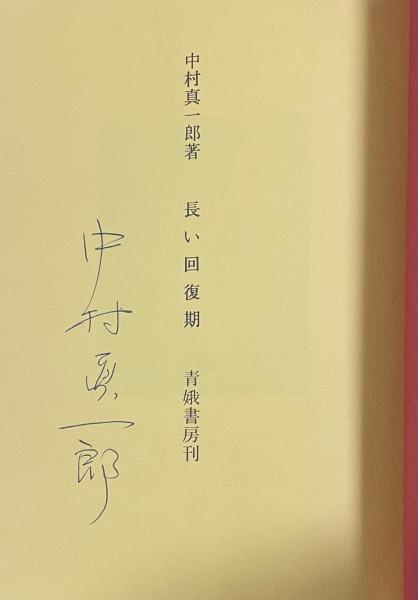 中村真一郎著　長い回復期　青娥書房刊
中村真一郎